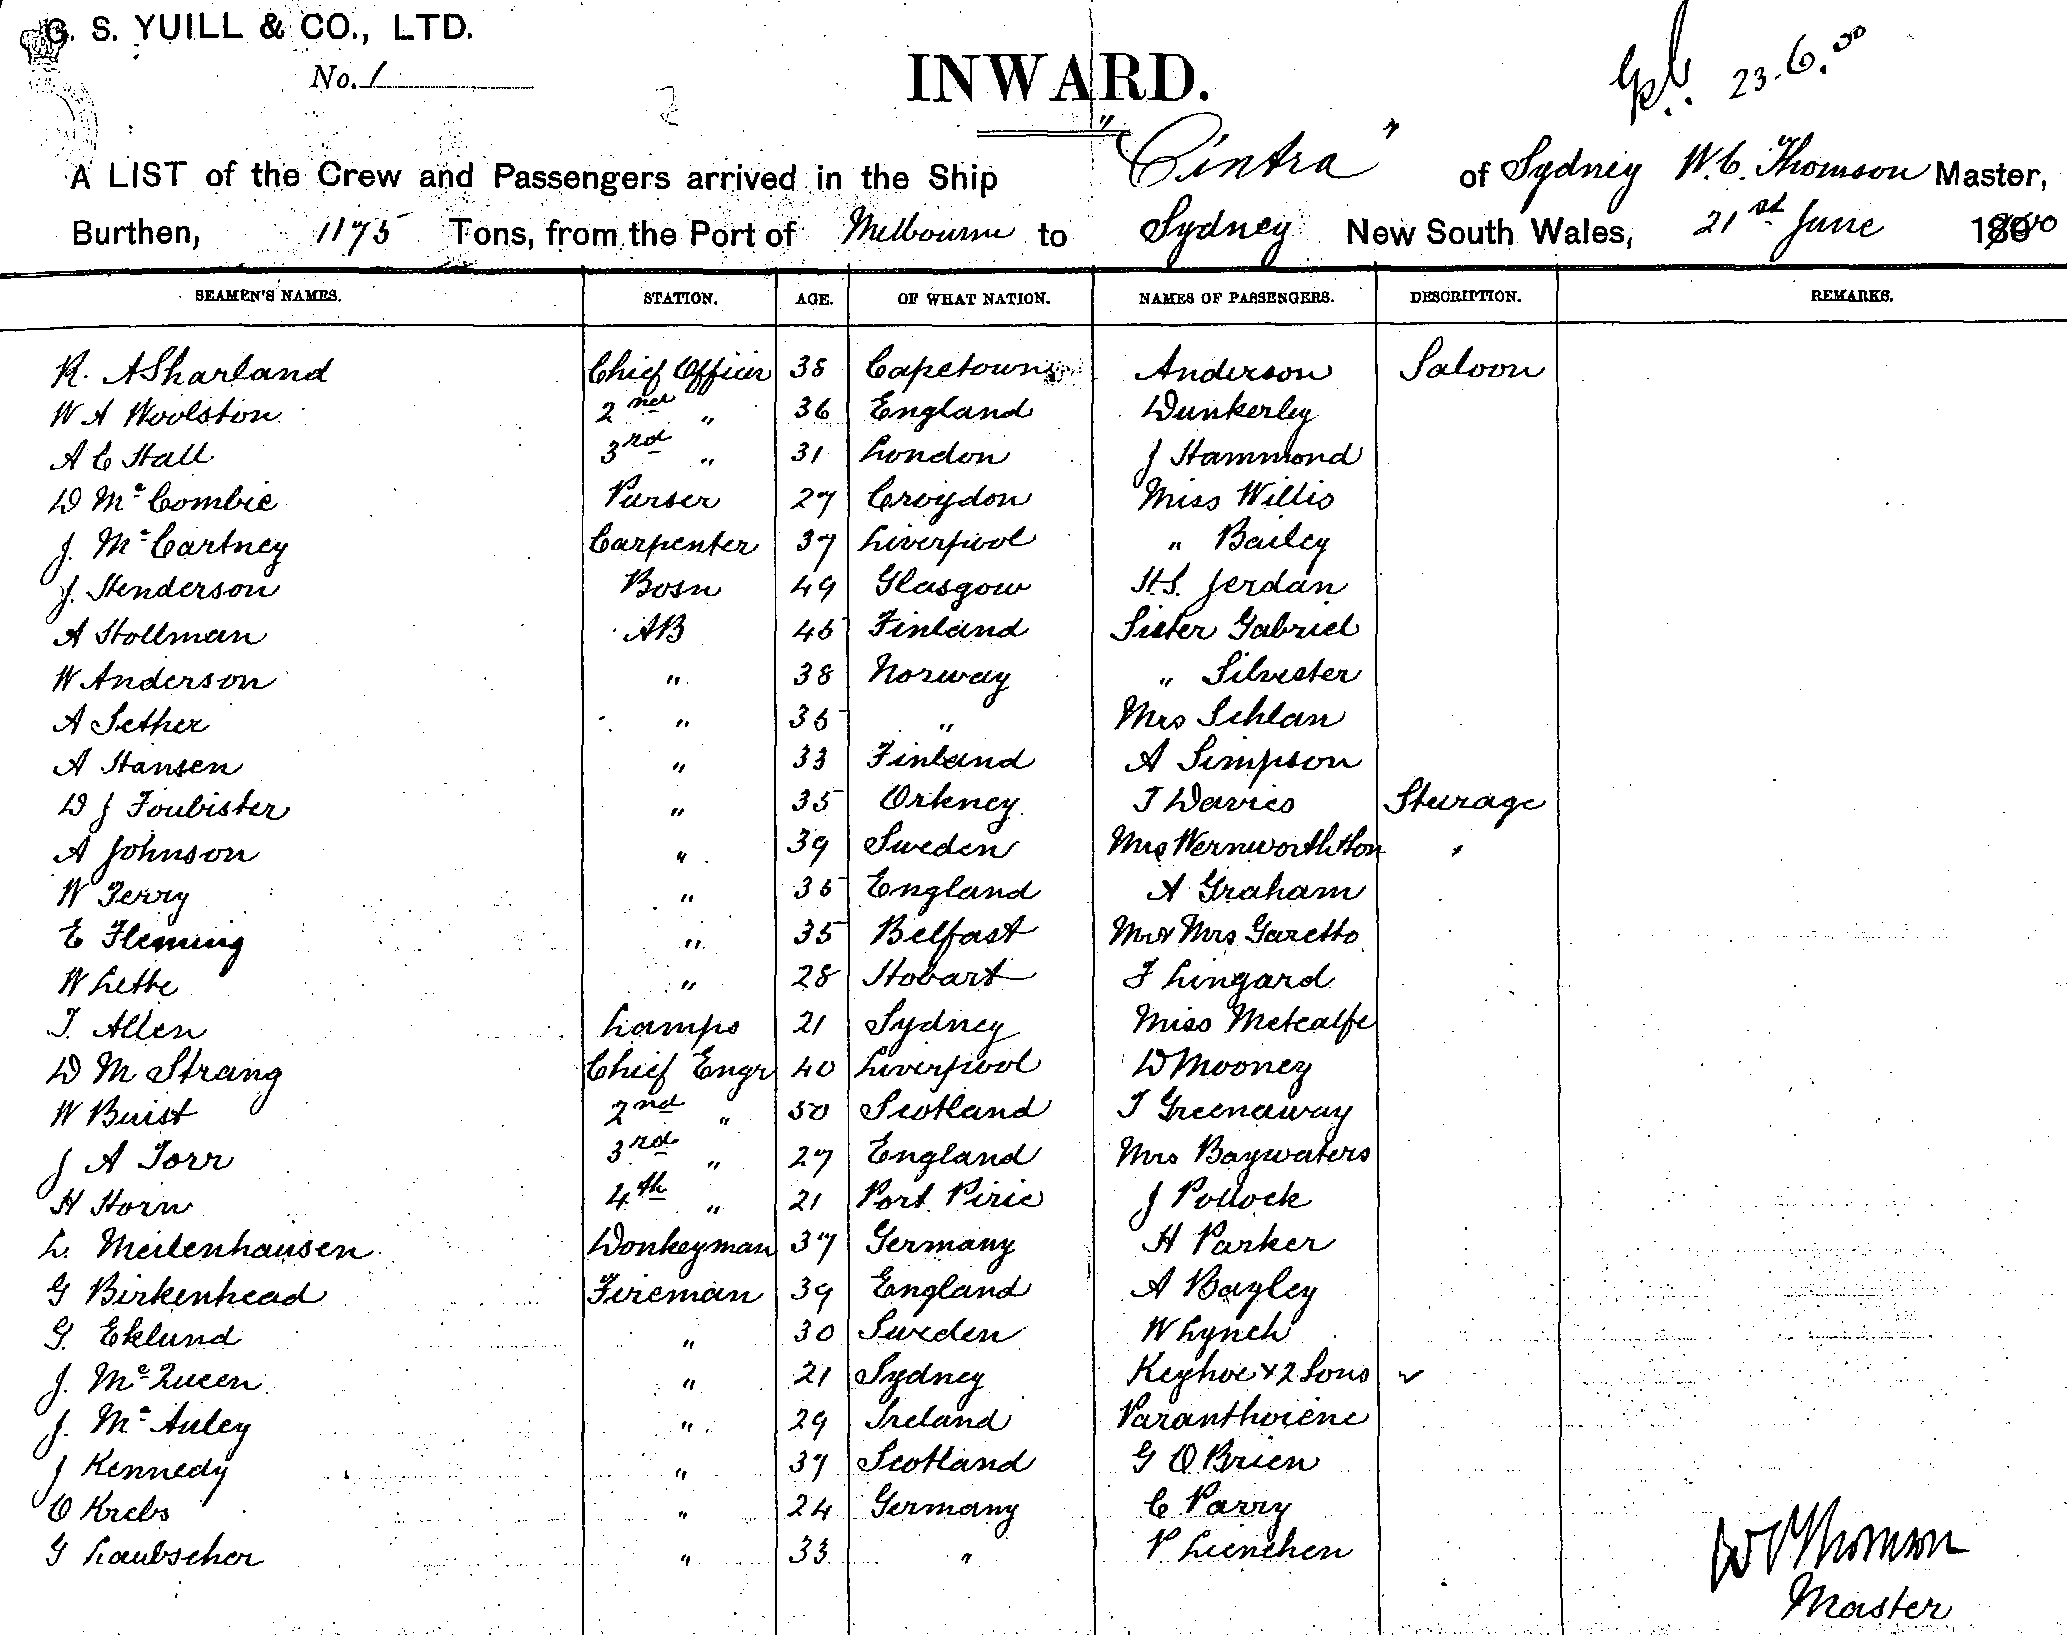 G. S. YUILL & CO., LTD.
No. 1
INWARD.
23.6.00
A LIST of the Crew and Passengers arrived in the Ship "Cintra" of Sydney W. C. Thomson Master,
Burthen, 1175 Tons, from the Port of Melbourne to Sydney New South Wales, 21st June 1900
SEAMEN'S NAMES. STATION. AGE. OF WHAT NATION. NAMES OF PASSENGERS. DESCRIPTION. REMARKS.
R. A Sharland Chief Officer 38 Capetown Anderson Saloon
W A Woolston 2nd " 36 England Dunkerley
A C Hall 3rd " 31 London J Hammond
D Mc Combie Purser 27 Croydon Miss Willis
J. Mc Cartney Carpenter 37 Liverpool " Bailey
J. Henderson Bosn 49 Glasgow H.S. Jerdan
A Hollman AB 45 Finland Sister Gabriel
W Anderson " 38 Norway " Silvester
A Sether " 35 " Mrs Schlan
A Hansen " 33 Finland A Simpson
D J Foubister " 35 Orkney T Davies Steerage
A Johnson " 39 Sweden Mrs Wernworth & Son "
W Terry " 35 England A Graham
E Fleming " 35 Belfast Mr & Mrs Garetto
W Lette " 28 Hobart F Lingard
T. Allen Lamps 21 Sydney Miss Metcalfe
D M Strang Chief Engr 40 Liverpool D Mooney
W Buist 2nd " 50 Scotland T Greenaway
J A Torr 3rd " 27 England Mrs Baywaters
H Horn 4th " 21 Port Pirie J Pollock
L. Meilenhausen Donkeyman 37 Germany H Parker
G Birkenhead Fireman 39 England A Bayley
G. Eklund " 30 Sweden W Lynch
J. Mc Queen " 21 Sydney Keyhoe & 2 Sons
J. Mc Auley " 29 Ireland Paranthoiene
J Kennedy " 37 Scotland G O Brien
O Krebs " 24 Germany C Parry
G Laubscher " 33 " P Lienchen
W C Thomson
Master